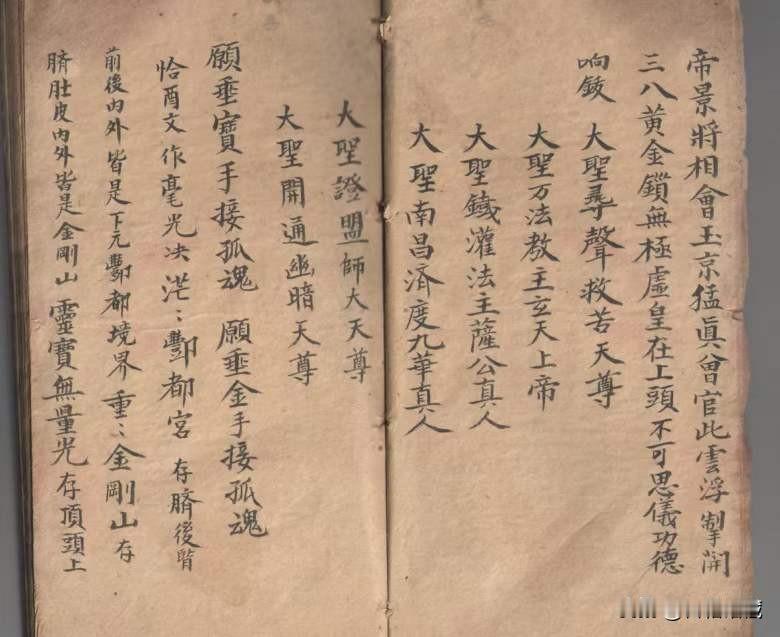 帝景將相會玉京猛眞曾官此雲浮掣開
三八黃金鎖無極虛皇在上頭不可思儀功德
响鈸 大聖尋聲救苦天尊
大聖万法教主玄天上帝
大聖鐵灌法主薩公真人
大聖南昌済度九華真人
大聖證盟師大天尊
大聖開通幽暗天尊
願垂寶手接孤魂 願垂金手接孤魂
恰酉文作毫光决茫：酆都宮 存臍後皆
前後内外皆是下元酆都境界重：金剛山 存
臍肚皮内外皆是金剛山 靈寶無量光 存頂頭上